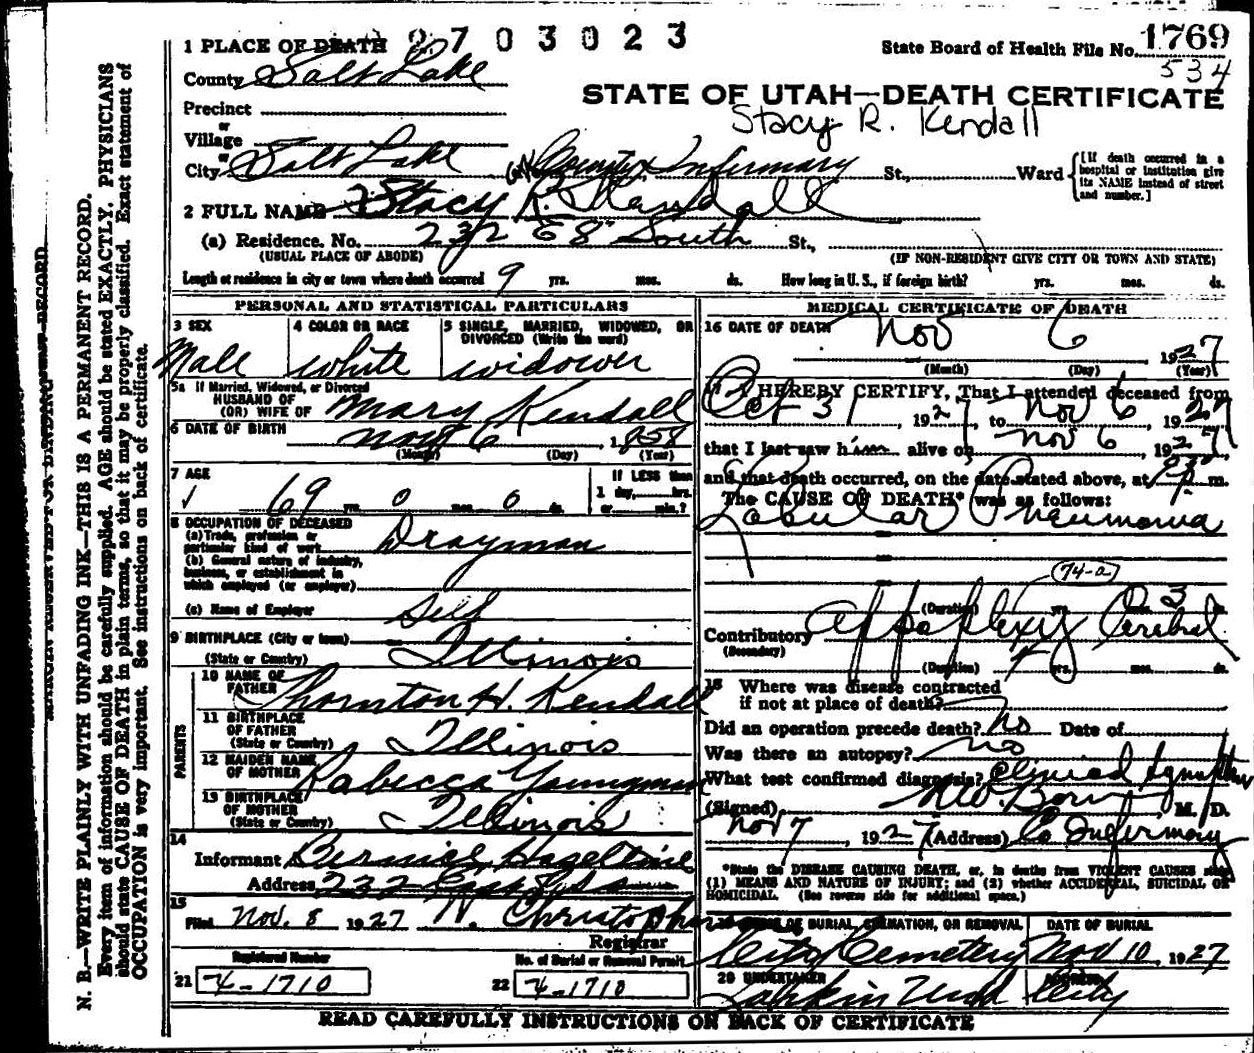 2703023
State Board of Health File No. 1769
534
1 PLACE OF DEATH
County Salt Lake
STATE OF UTAH—DEATH CERTIFICATE
Precinct
Stacy R. Kendall
or
Village
or
City Salt Lake County Infirmary St., Ward
[If death occurred in a hospital or institution give its NAME instead of street and number.]
2 FULL NAME Stacy R. Kendall
(a) Residence. No. 232 E 8" South St.,
(USUAL PLACE OF ABODE) (IF NON-RESIDENT GIVE CITY OR TOWN AND STATE)
Length of residence in city or town where death occurred 9 yrs. mos. ds. How long in U. S., if foreign birth? yrs. mos. ds.
PERSONAL AND STATISTICAL PARTICULARS
3 SEX 4 COLOR OR RACE 5 SINGLE, MARRIED, WIDOWED, OR DIVORCED (Write the word)
Male white widower
5a If Married, Widowed, or Divorced
HUSBAND OF
(OR) WIFE OF Mary Kendall
6 DATE OF BIRTH Nov 6 1858
(Month) (Day) (Year)
7 AGE 69 yrs. 0 mos. 0 ds.
If LESS than 1 day, hrs. or min.?
8 OCCUPATION OF DECEASED
(a) Trade, profession or particular kind of work Drayman
(b) General nature of industry, business, or establishment in which employed (or employer)
(c) Name of Employer Self
9 BIRTHPLACE (City or town)
(State or Country) Illinois
PARENTS
10 NAME OF FATHER Thornton H. Kendall
11 BIRTHPLACE OF FATHER
(State or Country) Illinois
12 MAIDEN NAME OF MOTHER Rabecca Youngman
13 BIRTHPLACE OF MOTHER
(State or Country) Illinois
14
Informant Bernice Hazeltine
Address 232 East
15
Filed Nov. 8 1927 Christopher
Registrar
Registered Number No. of Burial or Removal Permit
21 X-1710 22 X-1710
MEDICAL CERTIFICATE OF DEATH
16 DATE OF DEATH Nov 6 1927
(Month) (Day) (Year)
17 I HEREBY CERTIFY, That I attended deceased from
Oct 31, 1927, to Nov 6, 1927
that I last saw him alive on Nov 6, 1927
and that death occurred, on the date stated above, at m.
The CAUSE OF DEATH* was as follows:
Lobular Pneumonia
74-a
(Duration) yrs. mos. 3 ds.
Contributory Appoplexy Cerebral
(Secondary)
(Duration) yrs. mos. ds.
18 Where was disease contracted
if not at place of death?
Did an operation precede death? no Date of
Was there an autopsy? no
What test confirmed diagnosis? Clinical Symptoms
(Signed) M. D.
Nov 7, 1927 (Address) Co Infermary
*State the DISEASE CAUSING DEATH, or, in deaths from VIOLENT CAUSES state
(1) MEANS AND NATURE OF INJURY; and (2) whether ACCIDENTAL, SUICIDAL OR
HOMICIDAL. (See reverse side for additional space.)
19 PLACE OF BURIAL, CREMATION, OR REMOVAL DATE OF BURIAL
City Cemetery Nov 10, 1927
20 UNDERTAKER ADDRESS
Larkin Und City
READ CAREFULLY INSTRUCTIONS ON BACK OF CERTIFICATE
MARGIN RESERVED FOR BINDING RECORD
N. B.—WRITE PLAINLY WITH UNFADING INK—THIS IS A PERMANENT RECORD.
Every item of information should be carefully supplied. AGE should be stated EXACTLY. PHYSICIANS
should state CAUSE OF DEATH in plain terms, so that it may be properly classified. Exact statement of
OCCUPATION is very important. See instructions on back of certificate.